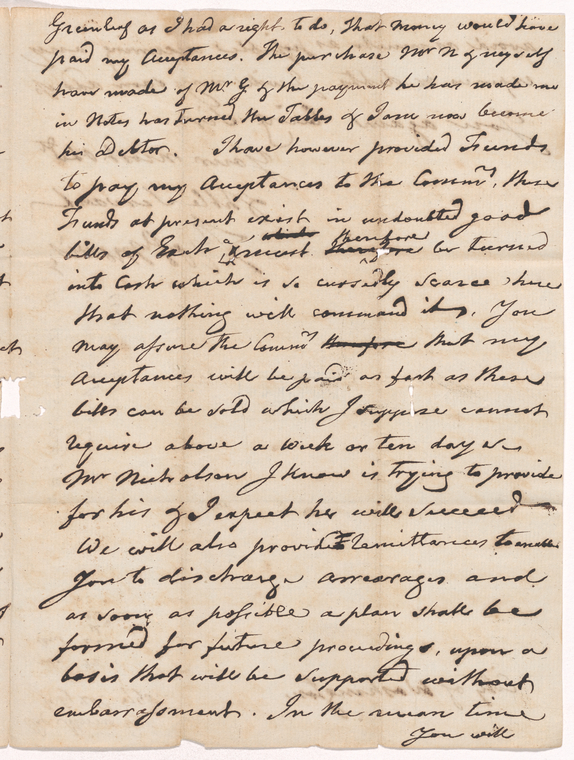 Greenleaf as I had a right to do, that money would have
paid my Acceptances. The purchase Mr N & myself
have made of Mr G & the payment he has made me
in Notes has turned the Tables & I am now become
his Debtor. I have however provided Funds
to pay my Acceptances to the Commrs, these
Funds at present exist in undoubted good
bills of Exche & must therefore be turned
into Cash which is so cursedly scarce here
that nothing will command it. You
may assure the Commrs therefore that my
Acceptances will be paid as fast as these
bills can be sold which I suppose cannot
require above a Week or ten days
Mr Nicholson I know is trying to provide
for his & I expect he will succeed
We will also provide Remittances to enable
You to discharge arrearages and
as soon as possible a plan shall be
formed for future proceedings, upon a
basis that will be supported without
embarrassment. In the mean time
You will